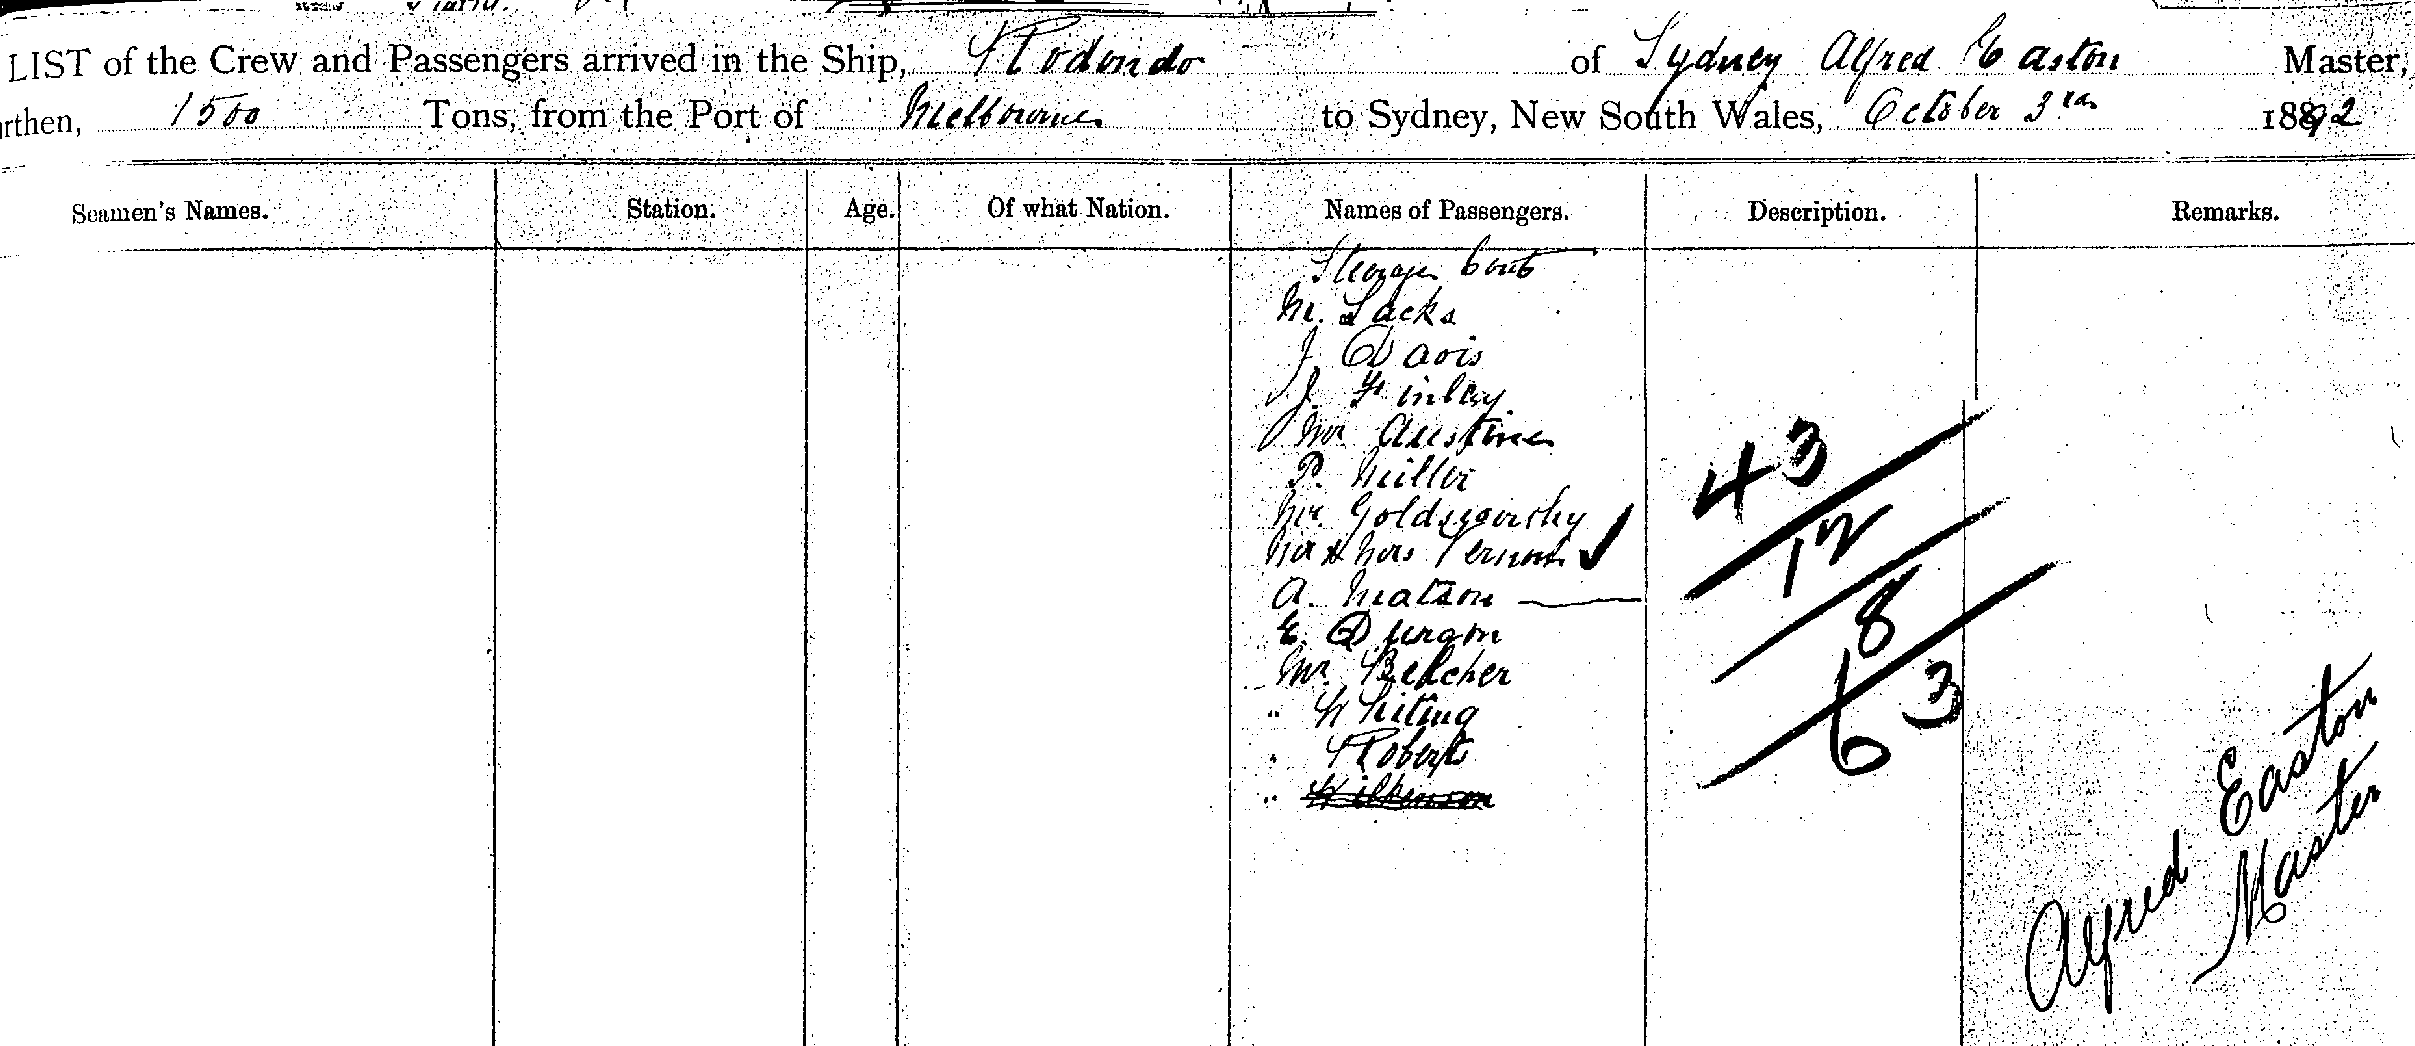 LIST of the Crew and Passengers arrived in the Ship, Rodondo of Sydney Alfred Easton Master,
rthen, 1500 Tons, from the Port of Melbourne to Sydney, New South Wales, October 3rd 1892
Seamen's Names. Station. Age. Of what Nation. Names of Passengers. Description. Remarks.
Steerage Cont
M. Sacks
J Davis
J. Finlay
Mr Austine
P. Miller
Mr. Goldsgourhy
Mr & Mrs Vernon ✓
A. Matson
E. Durgon
Mr. Belcher
" Whiting
" Robert
" Wilkinson
43
12
8
63
Alfred Easton
Master